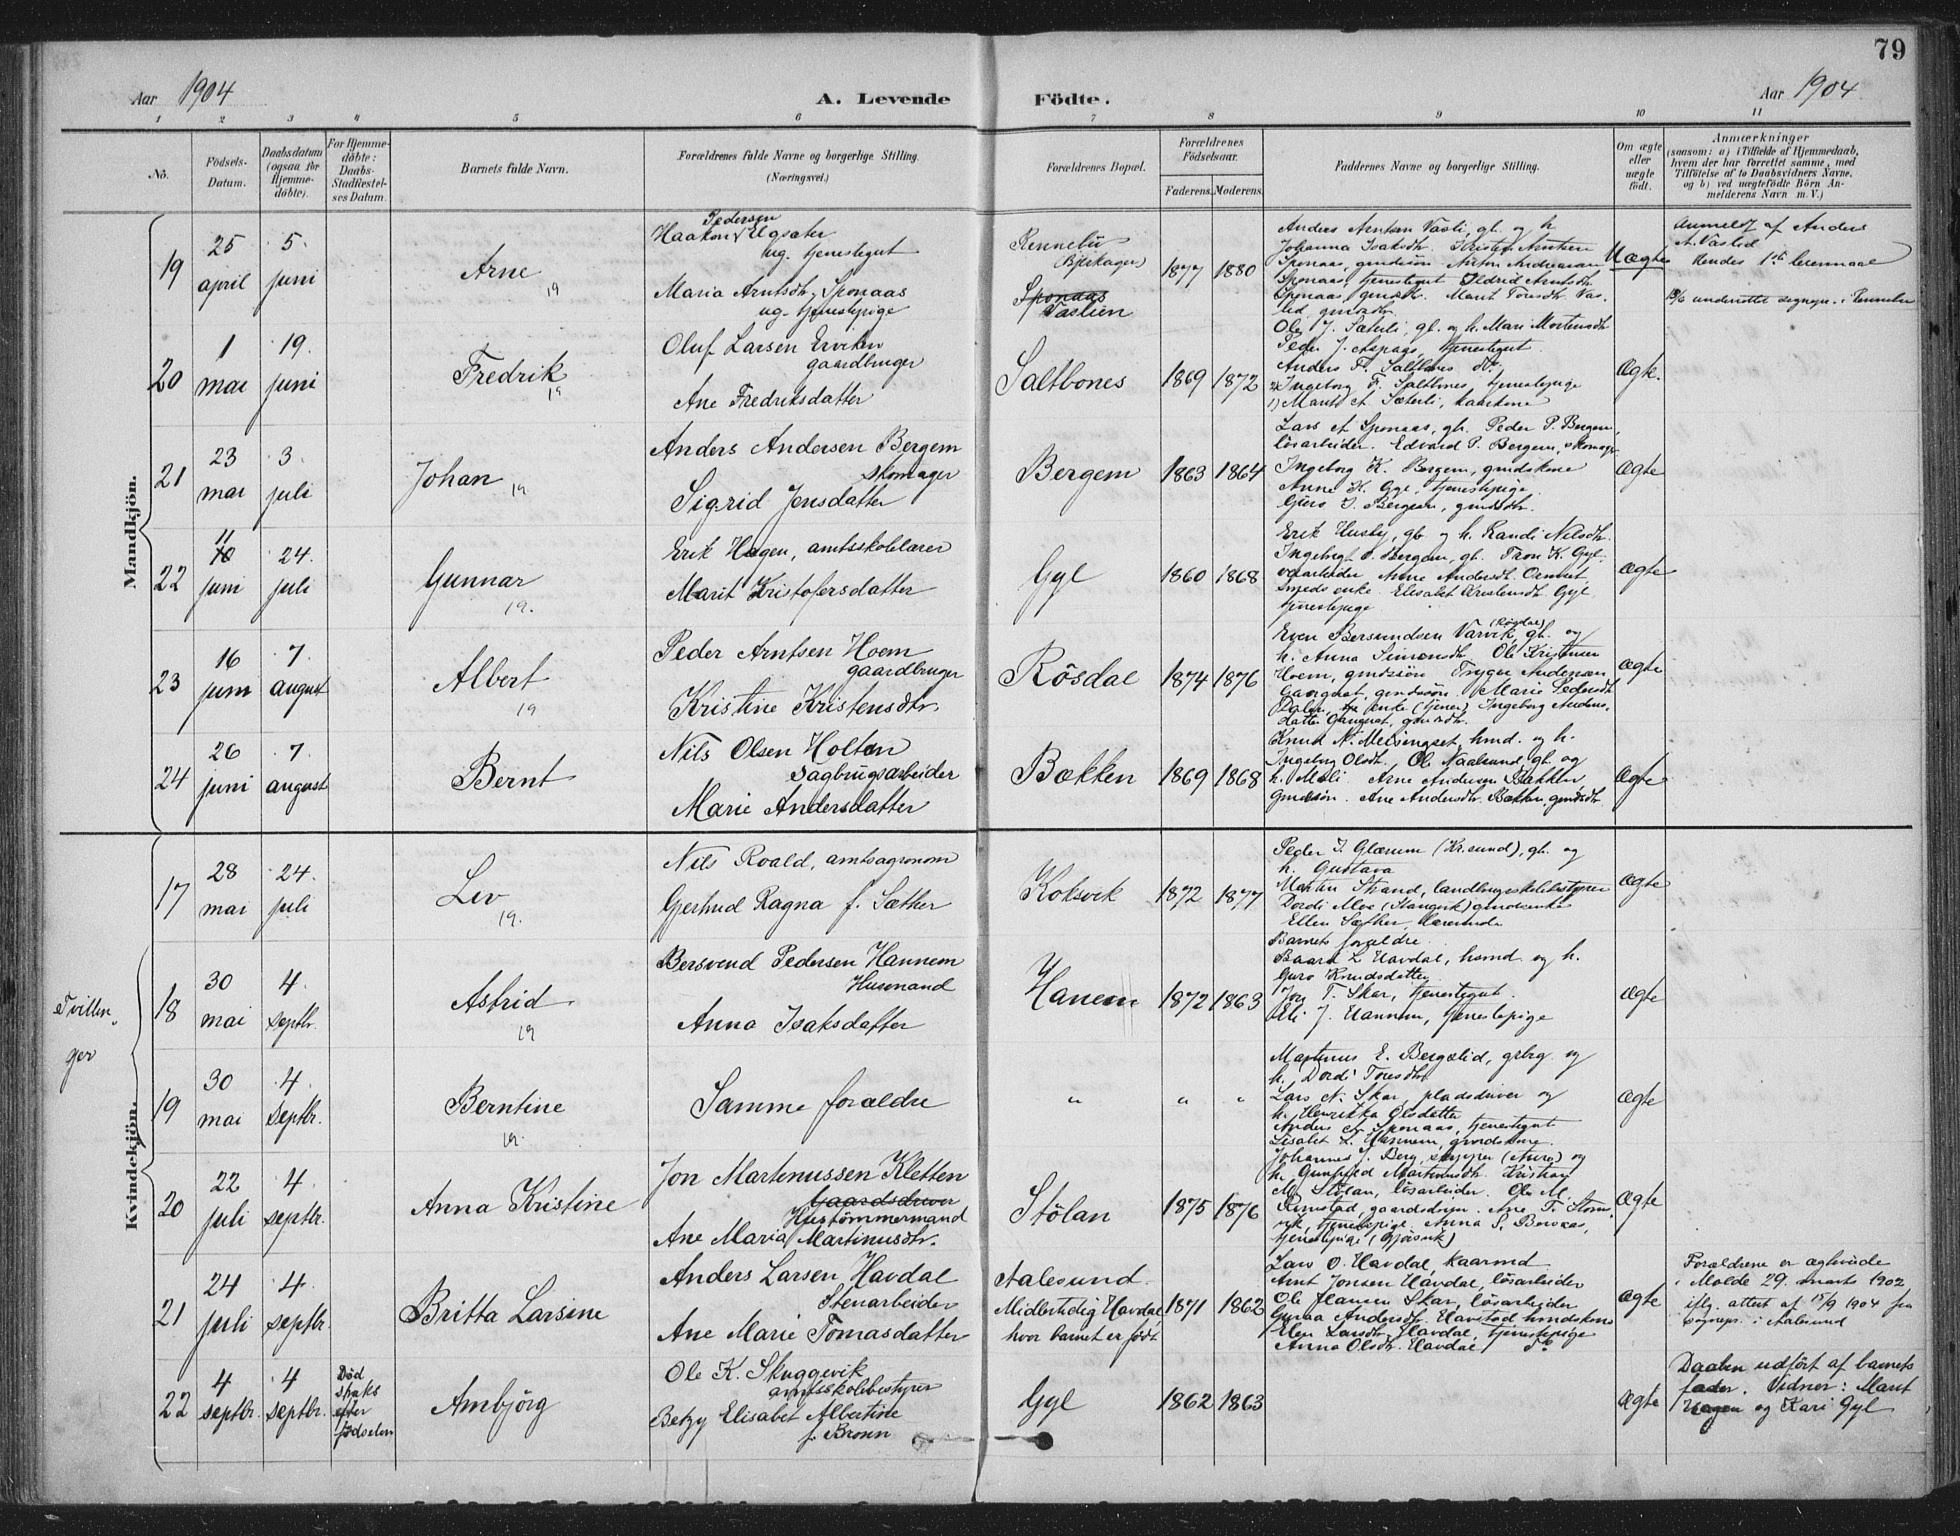 79
Aar 1904
A. Levende Födte.
Aar 1904.
1 2 3 4 5 6 7 8 9 10 11
No.
Födsels-
Datum.
Daabsdatum
(ogsaa for
Hjemme-
døbte).
For Hjemme-
døbte:
Daabs-
Stadfæstel-
ses Datum.
Barnets fulde Navn.
Forældrenes fulde Navne og borgerlige Stilling.
(Næringsvei.)
Forældrenes Bopæl.
Forældrenes
Födselsaar.
Faderens. Moderens.
Faddernes Navne og borgerlige Stilling.
Om ægte
eller
uægte
födt.
Anmærkninger
(saasom: a) i Tilfælde af Hjemmedaab,
hvem der har forrettet samme, med
Tilföielse af to Daabsvidners Navne,
og b) ved uægtefödte Börn An-
melderens Navn m. V.)
Mandkjön.
19
25
april
5.
juni
Arne
19
Pedersen
Haakon Elgsæter
ug. tjenestegut
Maria Arntsdtr Sponaas
ug. tjenestepige
Rennebu
Sponaas
Vaslien
1877 1880
Anders Arntsen Vasli, gb. og h
Johanna Isaksdtr.
Uægte
Anmeldt af Anders
A. Vaslid
Hendes 1ste leiermaal
20
1
mai
19.
juni
Fredrik
19
Oluf Larsen Erviken
gaardbruger
Ane Fredriksdatter
Saltbones
1869 1872
Ole J. Sæterli, gb. og h. Mari Mortensdtr
Peder J. Aspaas, tjenestegut.
Anders F. Saltbones do.
Ingeborg F. Saltbones, tjenestepige
Marit A. Sæterli, kaarkone
Ægte.
21
23
mai
3.
juli
Johan
19
Anders Andersen Bergem
skomager
Sigrid Jensdatter
Bergem
1863 1864
Lars A. Sponaas, gb. Peder P. Bergem,
lösarbeider. Edvard P. Bergem, skomager
Ingeborg K. Bergem, gmdskone
Anne K. Gyl, tjenestepige.
Guro I. Bergem, gmdsdtr.
Ægte
22
11
10
juni
24.
juli
Gunnar
19.
Erik Hagen, amtsskolelærer
Marit Kristofersdatter
Gyl
1860 1868
Erik Husby, gb. og h. Randi Nilsdtr.
Elisabet Kristensdtr. Gyl,
tjenestepige
Ægte
23
16
juni
7.
august
Albert
19
Peder Arntsen Hoem
gaardbruger
Kristine Kristensdtr.
Rösdal
1874 1876
(Rösdal)
Even Bersundsen Varvik, gb. og
h. Anna Simonsdtr. Ole Kristensen
Hoem, gmdssön. Trygve Andersen
Gangnat, gmdssön. Marie Pedersdtr
Ægte
24
26
juni
7
august
Bernt
Nils Olsen Holten
Sagbrugsarbeider
Marie Andersdatter
Bækken
1869 1868
Knud N. Meisingset, hmd. og h.
Ingeborg Olsdtr, Ole Naalsund, gb. og
h. Mali Arne Andersen Bækken
gmdssön. Ane Andersdtr. Bækken, gmdsdtr.
Ægte
Kvindekjön.
17
28
mai
24.
juli
Liv
19.
Nils Roald, amtsagronom
Gjertrud Ragna f. Sæther
Koksvik
1872 1877
Peder I. Glærum (Kr.sund), gb. og
h. Gustava
Martin Strand, landbrugsskolebestyrer
Dordi Moe (Stangvik) gmdsenke
Ellen Sæther, lærerinde
Barnets forældre.
Ægte
Tvillin-
ger
18
30
mai
4.
septbr.
Astrid
19
Bersvend Pedersen Hannem
Husmand
Anna Isaksdatter
Hanem
1872 1863
Baard L. Havdal, husmd og h.
Guro Knudsdatter
Jon T. Skar, tjenestegut.
Eli J. Hannem, tjenestepige
Ægte
19
30
mai
4.
septbr.
Berntine
19.
Samme forældre
" " "
Martinus E. Bergslid, grbrg. og
h. Dordi Toresdtr
Lars N. Skar, pladsdriver og
h. Henrikka Olsdatter
Anders A. Sponaas, tjenestegut
Lisabet L. Hannem, gmdskone.
Ægte
20
22
juli
4.
septbr.
Anna Kristine
Jon Martinussen Kletten
Gaardsdriver
Hustömmermand
Ane Maria Martinusdtr.
Stölan
1875 1876
Johannes J. Berg, skipper (Aure) og
h. Gunhild Martinusdtr. Kristian
M. Stölan, lösarbeider. Ole M.
Rimstad, gaardsdriver. Ane T. Storvik, tjenestepige, Anna S. Boraas,
tjenestepige (Gjösvik)
Ægte
21
24
juli
4
septbr.
Britta Larsine
Anders Larsen Havdal
Stenarbeider
Ane Marie Tomasdatter
Aalesund.
Midlertidig Havdal,
hvor barnet er født.
1871 1862
Lars O. Havdal, kaarmd.
Arnt Jonsen Havdal, lösarbeider
Ole Hansen Skar, lösarbeider
Guraa Andersdtr. Havstad hmdskone
Elen Larsdtr. Havdal, tjenestepige
Anna Olsdtr. Havdal, do.
Ægte
Forældrene er ægteviede
i Molde 29. marts 1902
iflg. attest af 15/9 1904 fra
sognepr. i Aalesund
22
4
septbr.
4
septbr.
Död
straks
efter
fødselen
Ambjörg
Ole K. Skuggevik
amtsskolebestyrer
Betzy Elisabet Albertine
f. Bronn
Gyl
1862 1863
Ægte
Daaben udfört af barnets
fader. Vidner: Marit
Hagen og Kari Gyl